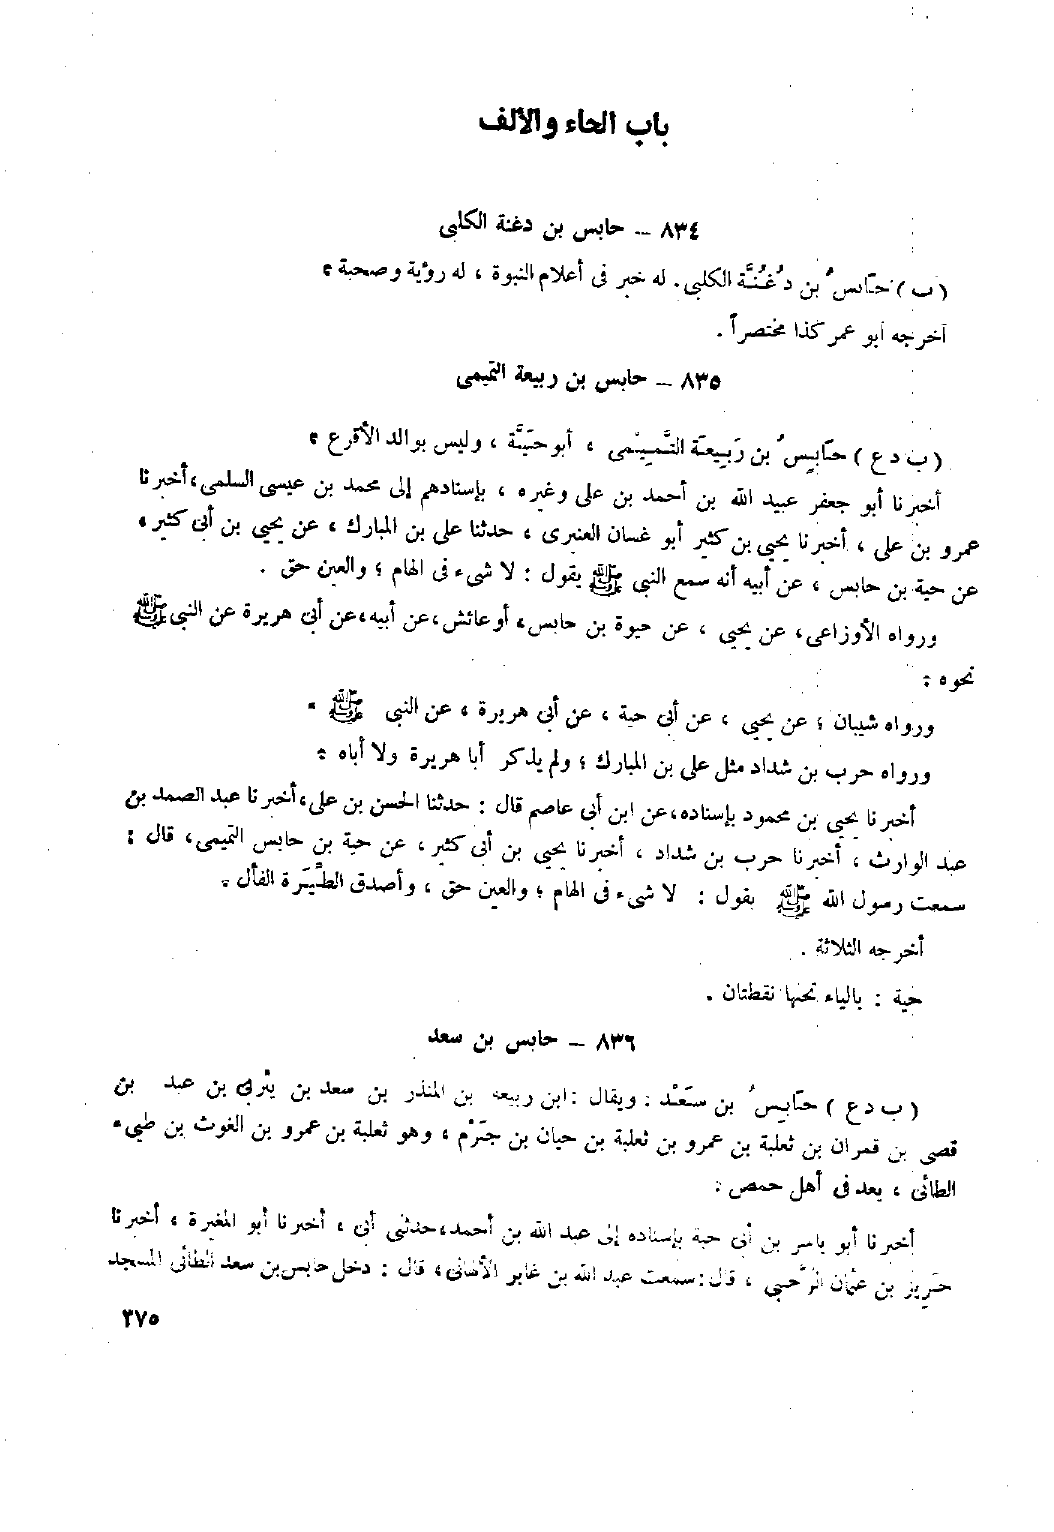 باب الحاء والألف
٨٣٤ – حابس بن دغنة الكلبى
( ب ) حَابسُ بن دُغُنَّة الكلبى . له خبر فى أعلام النبوة ، له رؤية وصحبة .
أخرجه أبو عمر كذا مختصراً .
٨٣٥ – حابس بن ربيعة التميمى
( ب د ع ) حَابِسُ بن رَبِيعَة التَّمِيمْى ، أبو حَيَّة ، وليس بوالد الأقرع .
أخبرنا أبو جعفر عبيد الله بن أحمد بن على وغيره ، بإسنادهم إلى محمد بن عيسى السلمى ، أخبرنا
عمرو بن على ، أخبرنا يحيى بن كثير أبو غسان العنبرى ، حدثنا على بن المبارك ، عن يحيى بن أبى كثير ،
عن حية بن حابس ، عن أبيه أنه سمع النبى ﷺ يقول : لا شىء فى الهام ؛ والعين حق .
ورواه الأوزاعى ، عن يحيى ، عن حيوة بن حابس ، أو عائش ، عن أبيه ، عن أبى هريرة عن النبى ﷺ
نحوه :
ورواه شيبان ؛ عن يحيى ، عن أبى حية ، عن أبى هريرة ، عن النبى ﷺ .
ورواه حرب بن شداد مثل على بن المبارك ؛ ولم يذكر أبا هريرة ولا أباه :
أخبرنا يحيى بن محمود بإسناده ، عن ابن أبى عاصم قال : حدثنا الحسن بن على ، أخبرنا عبد الصمد بن
عبد الوارث ، أخبرنا حرب بن شداد ، أخبرنا يحيى بن أبى كثير ، عن حية بن حابس التميمى ، قال :
سمعت رسول الله ﷺ يقول : لا شىء فى الهام ؛ والعين حق ، وأصدق الطِّيَرة الفأل .
أخرجه الثلاثة .
حية : بالياء تحتها نقطتان .
٨٣٦ – حابس بن سعد
( ب د ع ) حَابِسُ بن سَعْد : ويقال : ابن ربيعه بن المنذر بن سعد بن يثربى بن عبد بن
قصى بن قمران بن ثعلبة بن عمرو بن ثعلبة بن حيان بن جَرْم ، وهو ثعلبة بن عمرو بن الغوث بن طيىء
الطائى ، يعد فى أهل حمص :
أخبرنا أبو ياسر بن أبى حبة بإسناده إلى عبد الله بن أحمد ، حدثنى أبى ، أخبرنا أبو المغيرة ، أخبرنا
حَرِيز بن عثمان الرَّحبى ، قال : سمعت عبد الله بن غابر الألهانى ، قال : دخل حابس بن سعد الطائى المسجد
٣٧٥